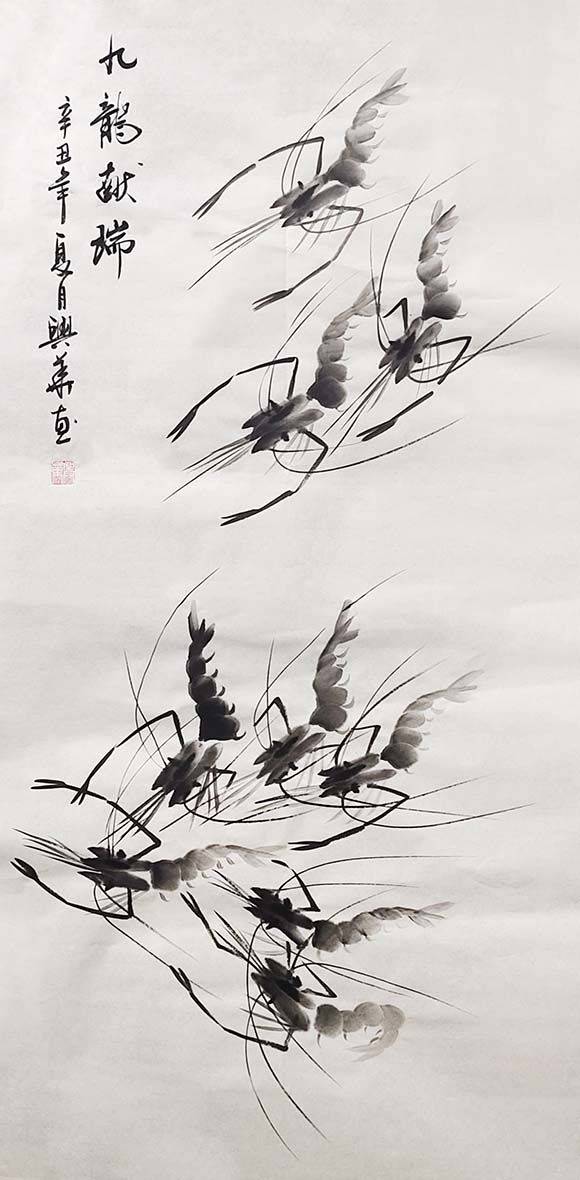 九龍献瑞
辛丑年夏月興華画